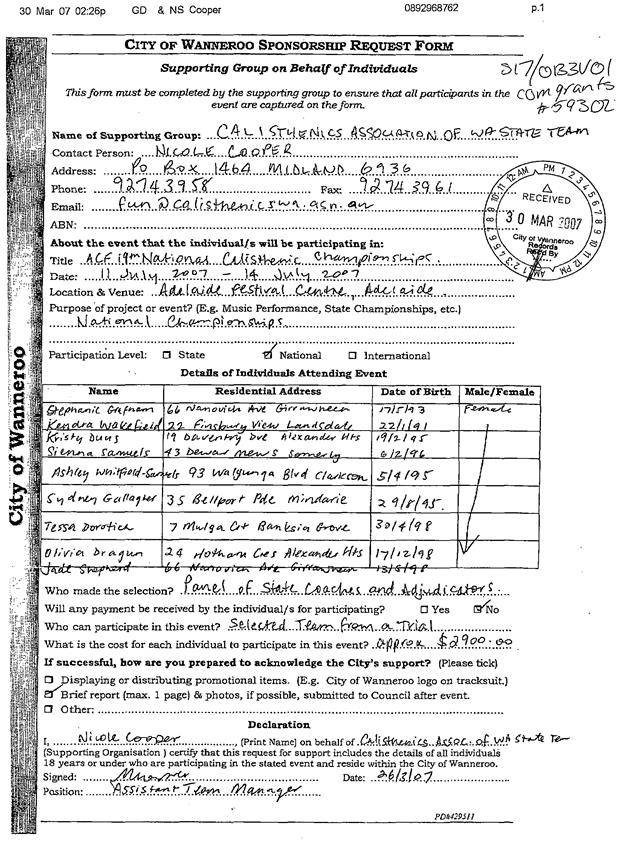 30 Mar 07 02:26p GD & NS Cooper 0892968762 p.1
CITY OF WANNEROO SPONSORSHIP REQUEST FORM
Supporting Group on Behalf of Individuals
S17/0133V01
This form must be completed by the supporting group to ensure that all participants in the event are captured on the form.
com grants
#59302
Name of Supporting Group: CALISTHENICS ASSOCIATION OF WA STATE TEAM
Contact Person: NICOLE COOPER
Address: PO BOX 1464 MIDLAND 6936
Phone: 92743958 Fax: 92743961
Email: fun@calisthenicswa.asn.au
ABN:
RECEIVED
30 MAR 2007
City of Wanneroo
Records
Rec'd By
About the event that the individual/s will be participating in:
Title ACF 19th National Calisthenic Championships.
Date: 11 July 2007 - 14 July 2007
Location & Venue: Adelaide Festival Centre, Adelaide.
Purpose of project or event? (E.g. Music Performance, State Championships, etc.)
National Championships
Participation Level: State National International
Details of Individuals Attending Event
Name Residential Address Date of Birth Male/Female
Stephanie 66 Nanovich Ave Girrawheen 17/5/93 Female
Kendra Wakefield 22 Finsbury View Landsdale 22/1/91
Kristy Duus 19 Daventry Dve Alexander Hts 19/2/95
Sienna Samuels 43 Dewar Mews Somerly 6/2/96
Ashley Whitfield-Samuels 93 Walyunga Blvd Clarkson 5/4/95
Sydney Gallagher 35 Bellport Pde Mindarie 29/8/95.
Tessa Dorotich 7 Mulga Crt Banksia Grove 30/4/98
Olivia Dragun 24 Hotham Cres Alexander Hts 17/12/98
Jade Shepherd 66 Nanovich Ave Girrawheen 13/5/98
Who made the selection? Panel of State Coaches and Adjudicators.
Will any payment be received by the individual/s for participating? Yes No
Who can participate in this event? Selected Team from a Trial
What is the cost for each individual to participate in this event? approx $2900.00
If successful, how are you prepared to acknowledge the City's support? (Please tick)
Displaying or distributing promotional items. (E.g. City of Wanneroo logo on tracksuit.)
Brief report (max. 1 page) & photos, if possible, submitted to Council after event.
Other:
Declaration
I, Nicole Cooper, (Print Name) on behalf of Calisthenics Assoc. of WA State Te
(Supporting Organisation) certify that this request for support includes the details of all individuals
18 years or under who are participating in the stated event and reside within the City of Wanneroo.
Signed: Date: 26/3/07
Position: Assistant Team Manager
PD#429511
City of Wanneroo